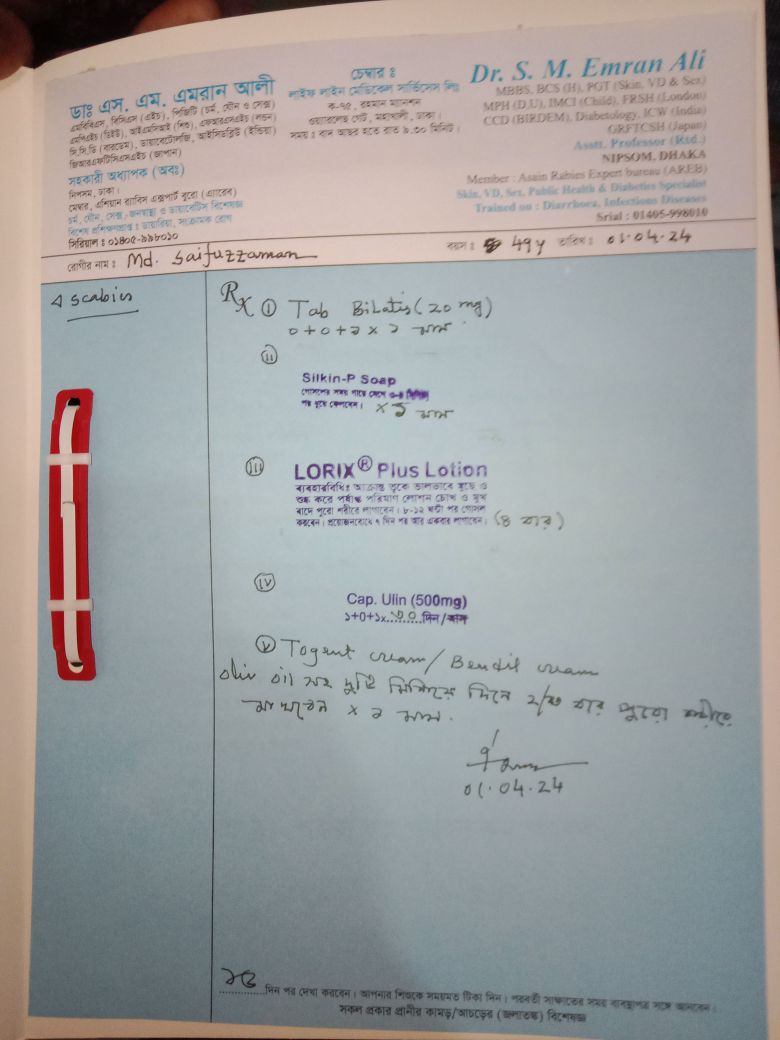 ডাঃ এস. এম. এমরান আলী
এমবিবিএস, বিসিএস (এইচ), পিজিটি (চর্ম, যৌন ও সেক্স)
এমপিএইচ (ডিইউ), আইএমসিআই (শিশু), এফআরএসএইচ (লন্ডন)
সি.সি.ডি (বারডেম), ডায়াবেটোলজি, আইসিডব্লিউ (ইন্ডিয়া)
জিআরএফটিসিএসএইচ (জাপান)
সহকারী অধ্যাপক (অবঃ)
নিপসম, ঢাকা।
মেম্বার, এশিয়ান র‍্যাবিস এক্সপার্ট ব্যুরো (এ্যারেব)
চর্ম, যৌন, সেক্স, জনস্বাস্থ্য ও ডায়াবেটিস বিশেষজ্ঞ
বিশেষ প্রশিক্ষণপ্রাপ্ত : ডায়ারিয়া, সংক্রামক রোগ
সিরিয়াল : ০১৪০৫-৯৯৮০১০
চেম্বার :
লাইফ লাইন মেডিকেল সার্ভিসেস লিঃ
ক-৭৫, রহমান ম্যানশন
ওয়্যারলেছ গেট, মহাখালী, ঢাকা।
সময় : বাদ আছর হতে রাত ৯.৩০ মিনিট।
Dr. S. M. Emran Ali
MBBS, BCS (H), PGT (Skin, VD & Sex)
MPH (D.U), IMCI (Child), FRSH (London)
CCD (BIRDEM), Diabetology, ICW (India)
GRFTCSH (Japan)
Asstt. Professor (Rtd.)
NIPSOM, DHAKA
Member : Asain Rabies Expert bureau (AREB)
Skin, VD, Sex, Public Health & Diabetics Specialist
Trained on : Diarrhoea, Infectious Diseases
Srial : 01405-998010
রোগীর নাম : Md. Saifuzzaman বয়স : 49y তারিখ : 01.04.24
scabies
Rx (i) Tab Bilatis (20 mg)
0+0+১ x ১ মাস
(ii)
Silkin-P Soap
গোসলের সময় গায়ে মেখে ৩-৪ মিনিট
পর ধুয়ে ফেলবেন। x ১ মাস
(iii) LORIX® Plus Lotion
ব্যবহারবিধিঃ আক্রান্ত ত্বকে ভালভাবে মুছে ও
শুষ্ক করে পর্যাপ্ত পরিমাণ লোশন চোখ ও মুখ
বাদে পুরো শরীরে লাগাবেন। ৮-১২ ঘন্টা পর গোসল
করবেন। প্রয়োজনবোধে ৭ দিন পর আর একবার লাগাবেন। (৪ বার)
(iv)
Cap. Ulin (500mg)
১+0+১x..৩০..দিন/মাস
(v) Togent cream/ Bendil cream
oliv oil সহ দুটি মিশিয়ে দিনে ২/৩ বার পুরো শরীরে
মাখবেন x ১ মাস.
01.04.24
১৫
..........দিন পর দেখা করবেন। আপনার শিশুকে সময়মত টিকা দিন। পরবর্তী সাক্ষাতের সময় ব্যবস্থাপত্র সঙ্গে আনবেন।
সকল প্রকার প্রানীর কামড়/আচড়ের (জলাতঙ্ক) বিশেষজ্ঞ